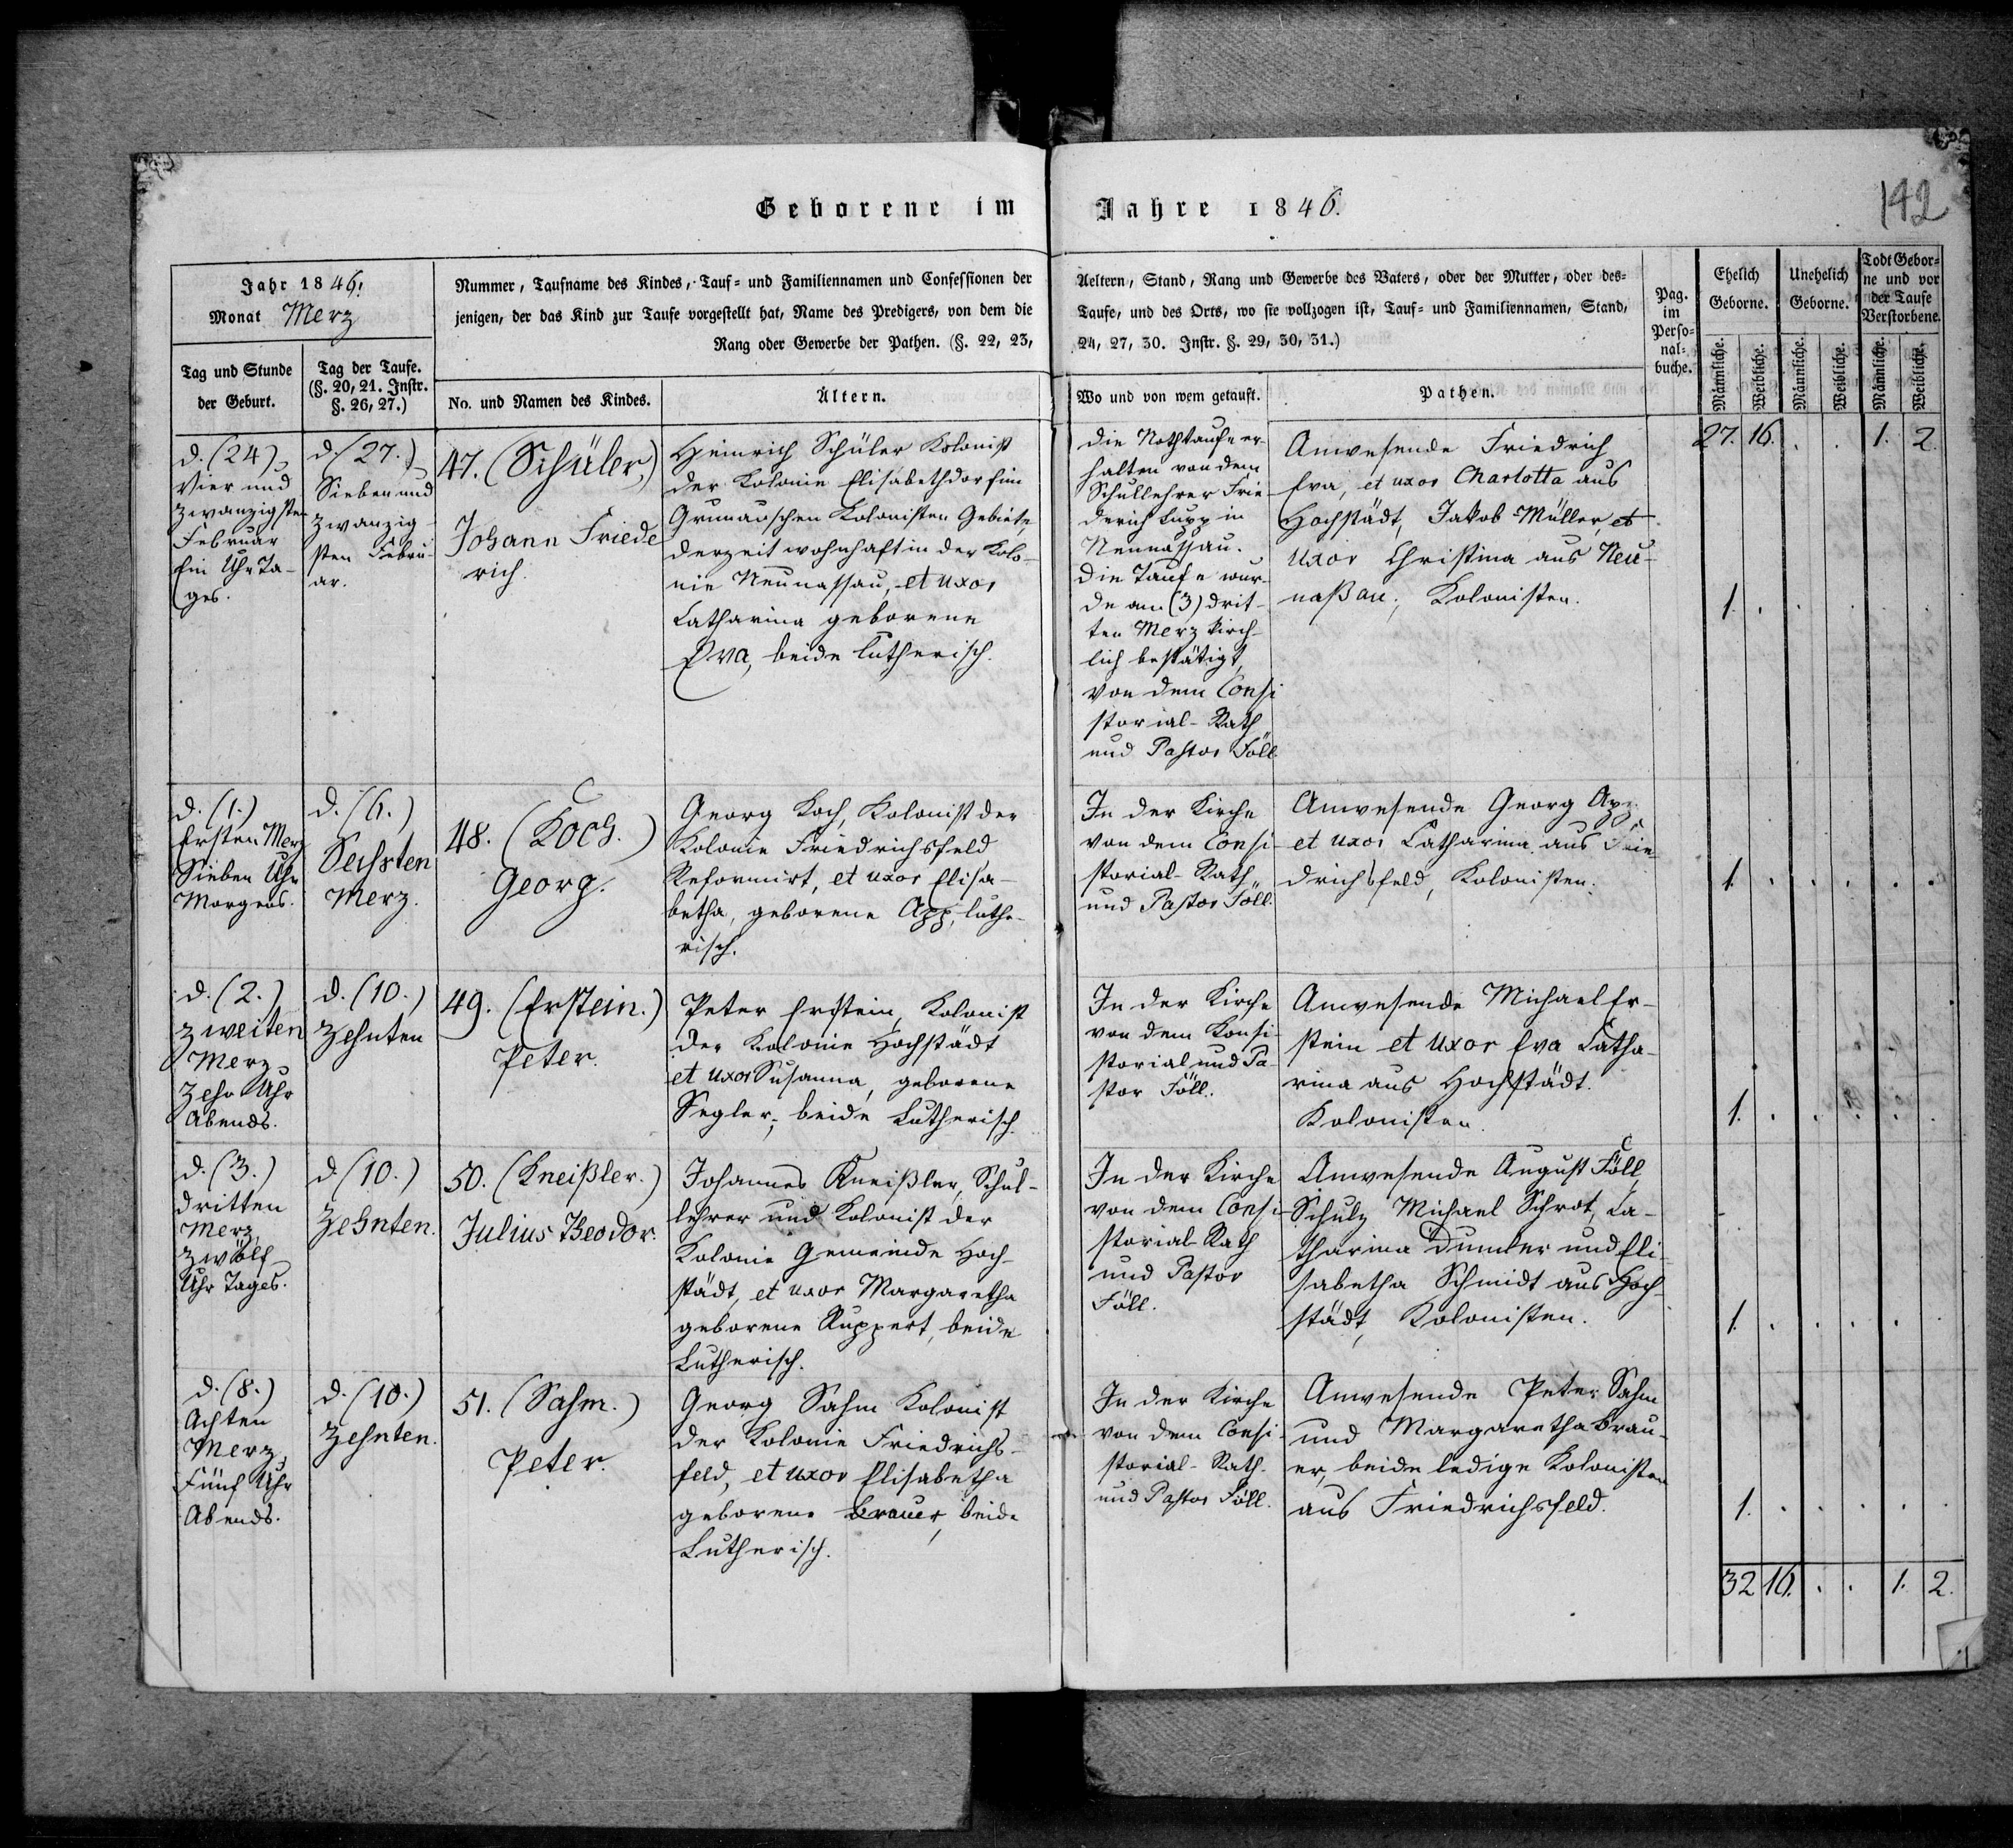 Geborene im Jahre 1846.
142
Jahr 1846.
Monat Merz
Nummer, Taufname des Kindes, Tauf- und Familiennamen und Confessionen der
jenigen, der das Kind zur Taufe vorgestellt hat, Name des Predigers, von dem die
Rang oder Gewerbe der Pathen. (§. 22, 23,
Aeltern, Stand, Rang und Gewerbe des Vaters, oder der Mutter, oder des-
Taufe, und des Orts, wo sie vollzogen ist, Tauf- und Familiennamen, Stand,
24, 27, 30. Instr. §. 29, 30, 31.)
Pag.
im
Perso-
nal-
buche.
Ehelich
Geborne.
Unehelich
Geborne.
Todt Gebor-
ne und vor
der Taufe
Verstorbene.
Männliche.
Weibliche.
Männliche.
Weibliche.
Männliche.
Weibliche.
Tag und Stunde
der Geburt.
Tag der Taufe.
(§. 20, 21. Instr.
§. 26, 27.)
No. und Namen des Kindes.
Ältern.
Wo und von wem getauft.
Pathen.
d. (24)
Vier und
zwanzigsten
Februar
Ein Uhr Ta-
ges.
d. (27.)
Sieben und
zwanzig-
sten Febru-
ar.
47. (Schüler)
Johann Friede
rich.
Heinrich Schüler Kolonist
der Kolonie Elisabethdorf im
Grunauschen Kolonisten Gebiete,
derzeit wohnhaft in der Kolo-
nie Neunassau, et uxor
Catharina geborene
Eva, beide lutherisch.
Die Nothtaufe er-
halten von dem
Schullehrer Frie
derich Lupp in
Neunassau.
Die Taufe wur-
de am (3) drit-
ten Merz kirch-
lich bestätigt,
von dem Consi
storial-Rath
und Pastor Föll.
Anwesende Friedrich
Eva, et uxor Charlotta aus
Hochstädt, Jakob Müller et
uxor Christina aus Neu-
naßau, Kolonisten.
27. 16. . . 1. 2.
1. . . . . .
d. (1.)
Ersten Merz
Sieben Uhr
Morgens.
d. (6.)
Sechsten
Merz.
48. (Koch.)
Georg.
Georg Koch, Kolonist der
Kolonie Friedrichsfeld
Reformirt, et uxor Elisa-
betha, geborene App, luthe-
risch.
In der Kirche
von dem Consi-
storial-Rath
und Pastor Föll.
Anwesende Georg App
et uxor Catharina aus Frie-
drichsfeld, Kolonisten.
1. . . . . .
d. (2.)
zweiten
Merz
Zehn Uhr
Abends.
d. (10.)
Zehnten
49. (Erstein.)
Peter.
Peter Erstein, Kolonist
der Kolonie Hochstädt
et uxor Susanna, geborene
Segler, beide Lutherisch.
In der Kirche
von dem Konsi-
storial und Pa-
stor Föll.
Anwesende Michael Er-
stein et uxor Eva Catha-
rina aus Hochstädt.
Kolonisten.
1. . . . . .
d. (3.)
dritten
Merz,
zwölf
Uhr Tages.
d. (10.)
Zehnten.
50. (Kneißler.)
Julius Theodor.
Johannes Kneißler, Schul-
lehrer und Kolonist der
Kolonie Gemeinde Hoch-
städt, et uxor Margaretha
geborene Ruppert, beide
Lutherisch.
In der Kirche
von dem Consi-
storial-Rath
und Pastor
Föll.
Anwesende August Föll,
Schulz Michael Schrot, Ca-
tharina Dumler und Eli-
sabetha Schmidt aus Hoch-
städt, Kolonisten.
1. . . . . .
d. (8.)
Achten
Merz,
Fünf Uhr
Abends.
d. (10.)
Zehnten.
51. (Sahm.)
Peter.
Georg Sahm Kolonist
der Kolonie Friedrichs-
feld, et uxor Elisabetha
geborene Brauer, beide
Lutherisch.
In der Kirche
von dem Consi-
storial-Rath
und Pastor Föll.
Anwesende Peter Sahm
und Margaretha Brau-
er, beide ledige Kolonisten
aus Friedrichsfeld.
1. . . . . .
32 16. . . 1. 2.